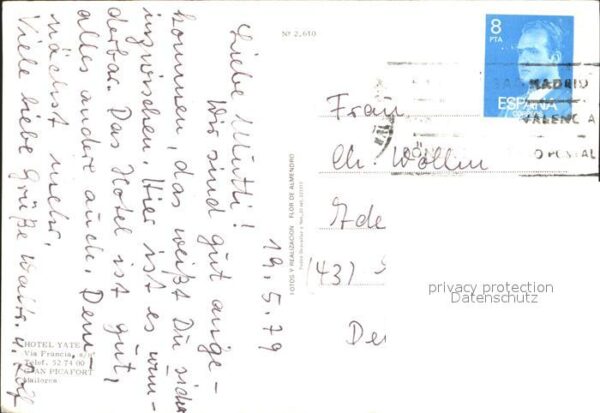 19.5.79
Liebe Mutti!
Wir sind gut ange-
kommen, das weißt Du sicher
inzwischen. Hier ist es wun-
derbar. Das Hotel ist gut,
alles andre auch. Dem-
nächst mehr.
Viele liebe Grüße Waltr. u. Rolf
HOTEL YATE
Via Francia, s/nº
Telef. 52 74 00
CAN PICAFORT
Mallorca
Nº 2.610
FOTOS Y REALIZACION FLOR DE ALMENDRO
8
PTA
ESPAÑA
MADRID
VALENCIA
POSTAL
Frau
Ch. Wöllm
Ade
(43)
De
privacy protection
Datenschutz